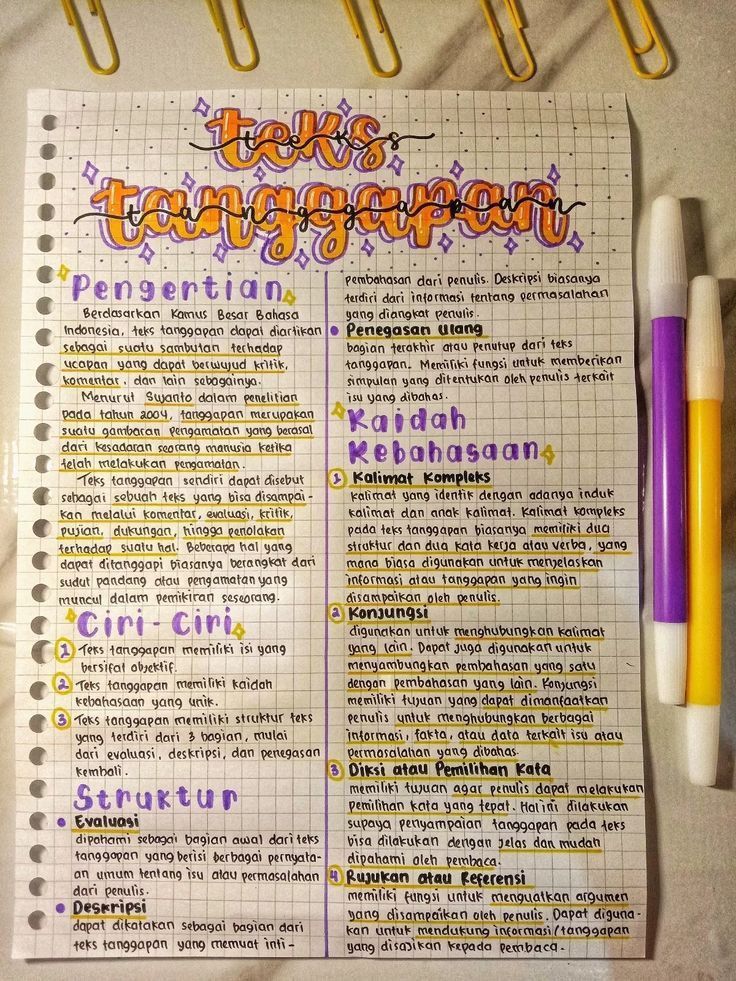 teks
teks
tanggapan
tanggapan
Pengertian
Berdasarkan Kamus Besar Bahasa
Indonesia, teks tanggapan dapat diartikan
sebagai suatu sambutan terhadap
ucapan yang dapat berwujud kritik,
komentar, dan lain sebagainya.
Menurut Suyanto dalam penelitian
pada tahun 2004, tanggapan merupakan
suatu gambaran pengamatan yang berasal
dari kesadaran seorang manusia ketika
telah melakukan pengamatan.
Teks tanggapan sendiri dapat disebut
sebagai sebuah teks yang bisa disampai-
kan melalui komentar, evaluasi, kritik,
pujian, dukungan, hingga penolakan
terhadap suatu hal. Beberapa hal yang
dapat ditanggapi biasanya berangkat dari
sudut pandang atau pengamatan yang
muncul dalam pemikiran seseorang.
Ciri-Ciri
1 Teks tanggapan memiliki isi yang
bersifat objektif.
2 Teks tanggapan memiliki kaidah
kebahasaan yang unik.
3 Teks tanggapan memiliki struktur teks
yang terdiri dari 3 bagian, mulai
dari evaluasi, deskripsi, dan penegasan
kembali.
Struktur
• Evaluasi
dipahami sebagai bagian awal dari teks
tanggapan yang berisi berbagai pernyata-
an umum tentang isu atau permasalahan
dari penulis.
• Deskripsi
dapat dikatakan sebagai bagian dari
teks tanggapan yang memuat inti-
pembahasan dari penulis. Deskripsi biasanya
terdiri dari informasi tentang permasalahan
yang diangkat penulis.
• Penegasan Ulang
bagian terakhir atau penutup dari teks
tanggapan. Memiliki fungsi untuk memberikan
simpulan yang ditentukan oleh penulis terkait
isu yang dibahas.
Kaidah
Kebahasaan
1 Kalimat Kompleks
kalimat yang identik dengan adanya induk
kalimat dan anak kalimat. Kalimat kompleks
pada teks tanggapan biasanya memiliki dua
struktur dan dua kata kerja atau verba, yang
mana biasa digunakan untuk menjelaskan
informasi atau tanggapan yang ingin
disampaikan oleh penulis.
2 Konjungsi
digunakan untuk menghubungkan kalimat
yang lain. Dapat juga digunakan untuk
menyambungkan pembahasan yang satu
dengan pembahasan yang lain. Konjungsi
memiliki tujuan yang dapat dimanfaatkan
penulis untuk menghubungkan berbagai
informasi, fakta, atau data terkait isu atau
permasalahan yang dibahas.
3 Diksi atau Pemilihan Kata
memiliki tujuan agar penulis dapat melakukan
pemilihan kata yang tepat. Hal ini dilakukan
supaya penyampaian tanggapan pada teks
bisa dilakukan dengan jelas dan mudah
dipahami oleh pembaca.
4 Rujukan atau Referensi
memiliki fungsi untuk menguatkan argumen
yang disampaikan oleh penulis. Dapat diguna-
kan untuk mendukung informasi/tanggapan
yang disajikan kepada pembaca.